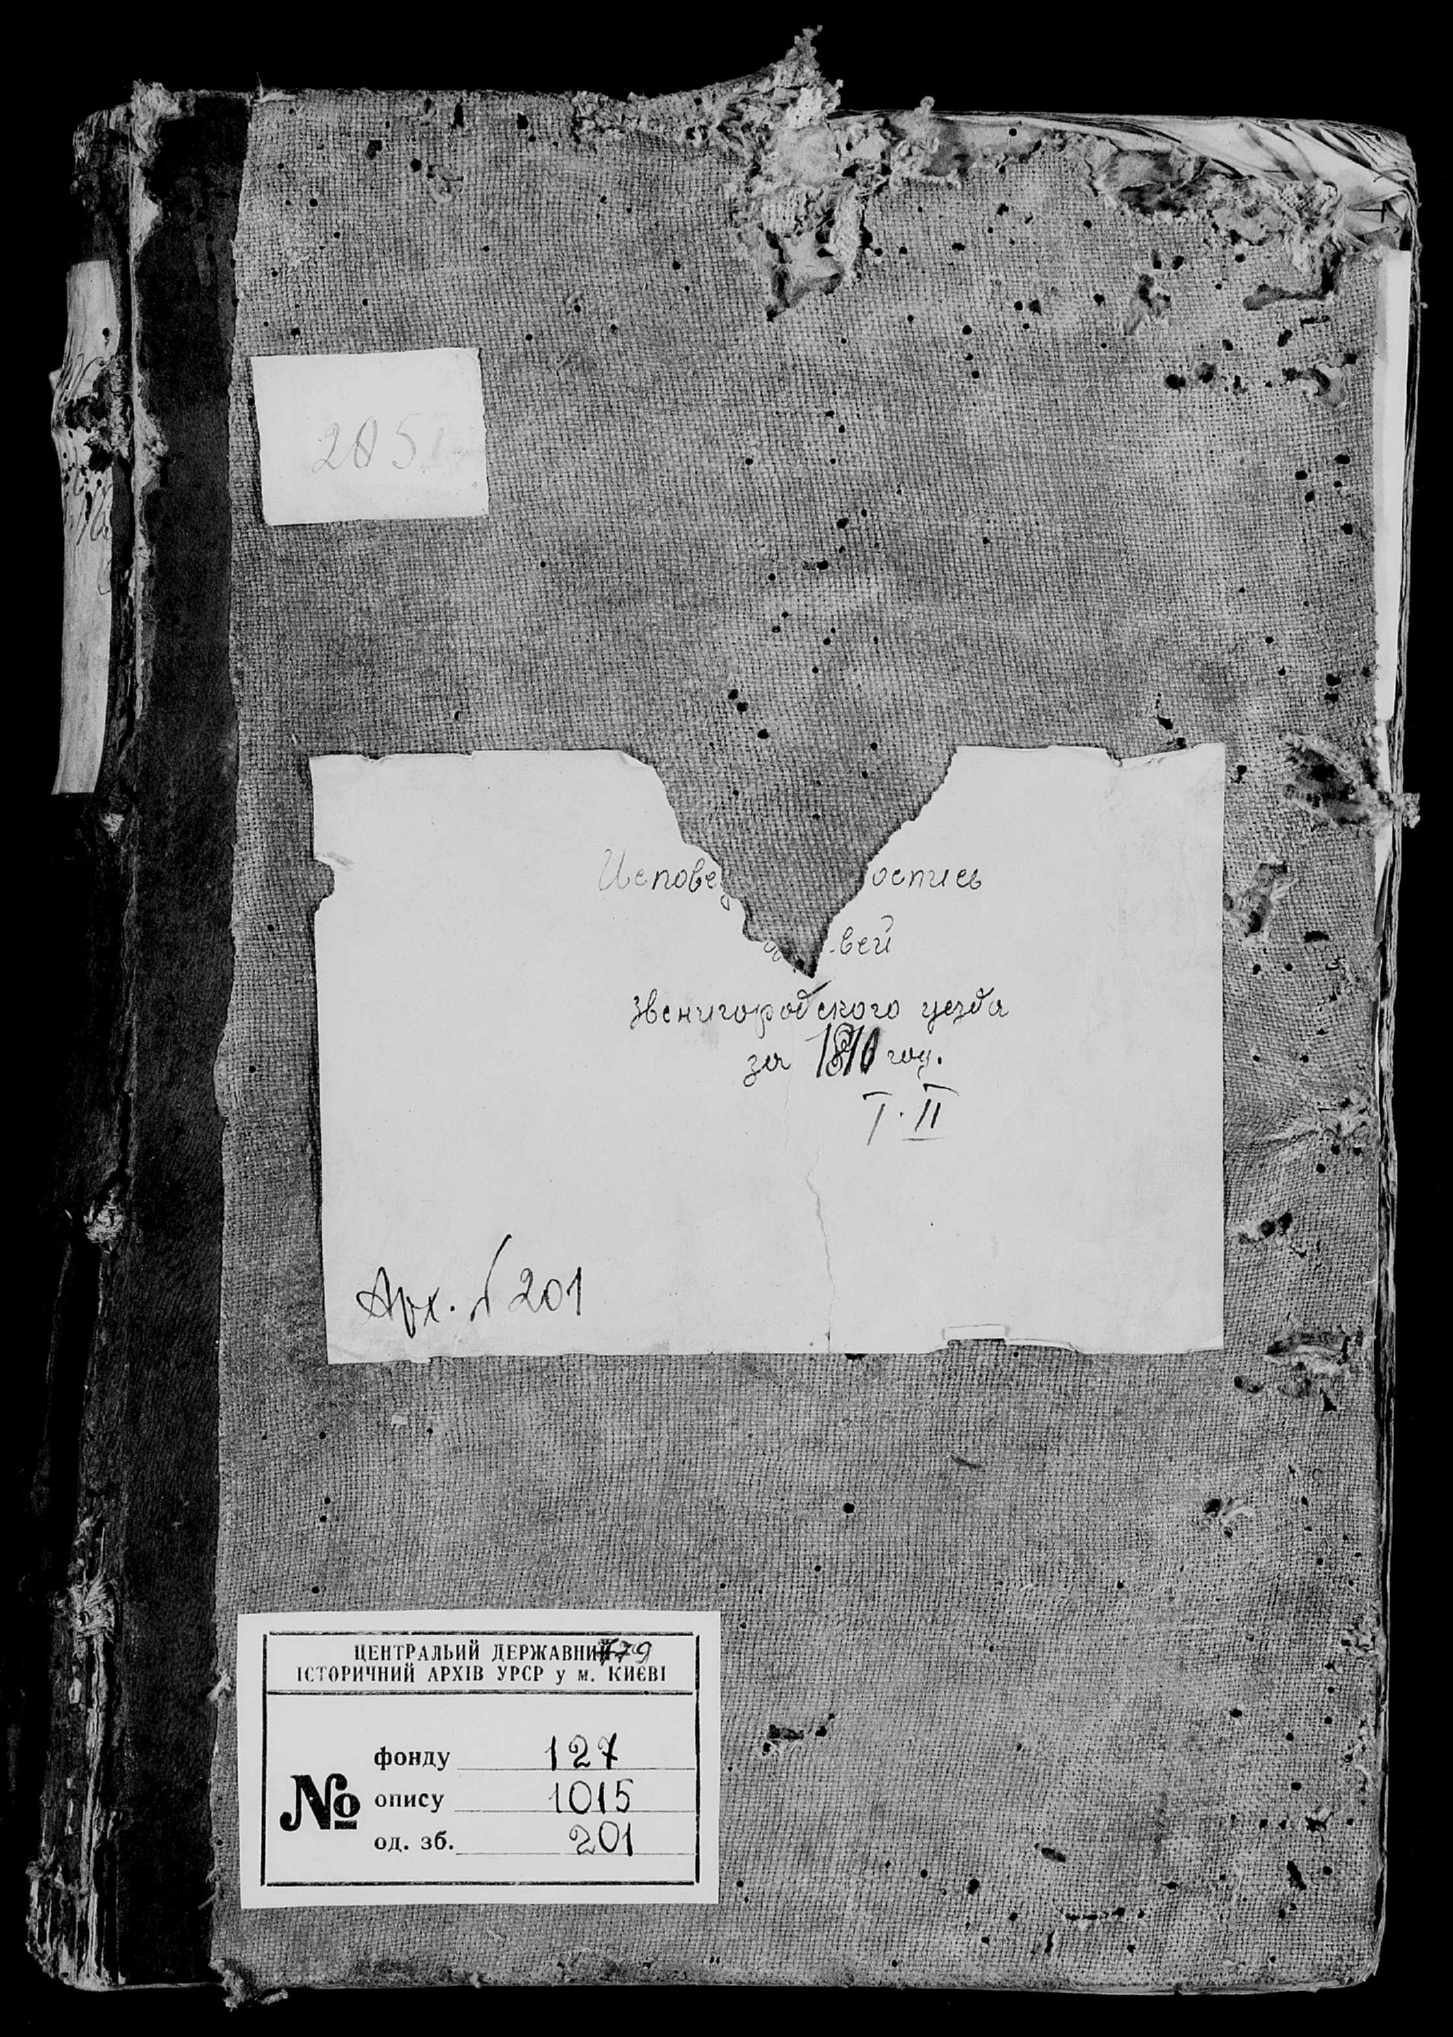 205
Испове остись
вей
Звенигородского уезда
за 1810 год.
Т. II
Арх. № 201
ЦЕНТРАЛЬИЙ ДЕРЖАВНИЙ 779
ІСТОРИЧНИЙ АРХІВ УРСР у м. КИЄВІ
№
фонду 127
опису 1015
од. зб. 201